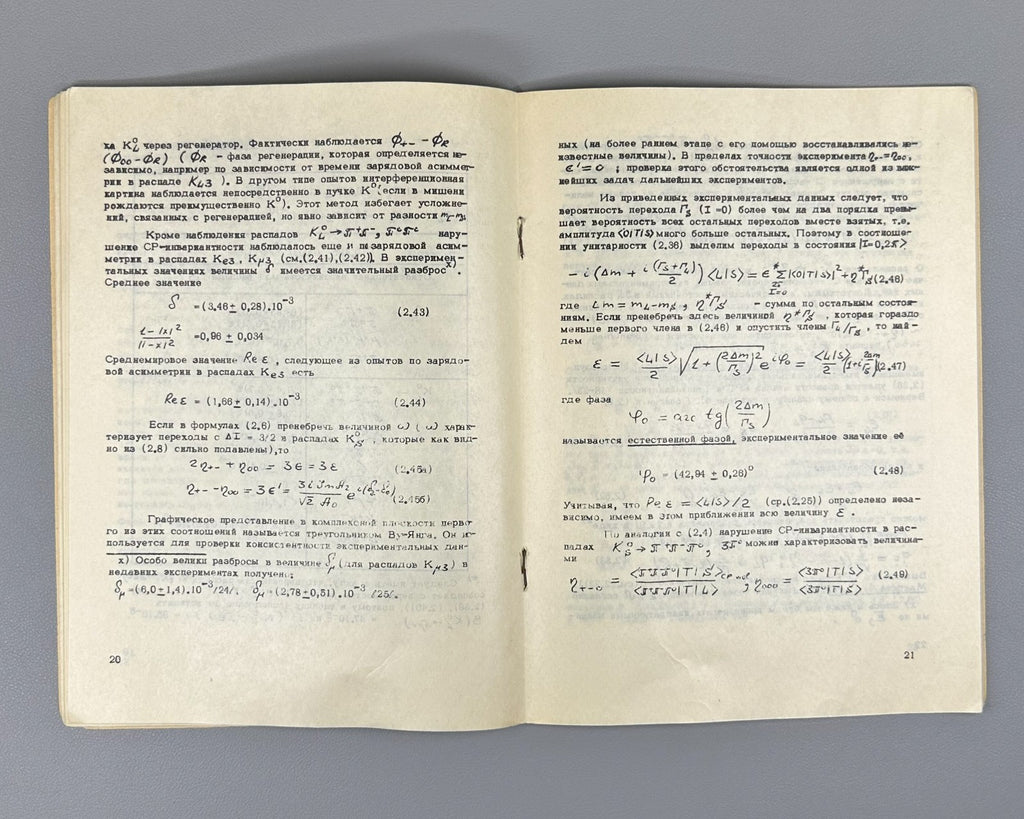 ка K⁰_L через регенератор. Фактически наблюдается Φ₊₋ − Φ_R
(Φ₀₀ − Φ_R) (Φ_R - фаза регенерации, которая определяется не-
зависимо, например по зависимости от времени зарядовой асиммет-
рии в распаде K_L3 ). В другом типе опытов интерференционная
картина наблюдается непосредственно в пучке K⁰ (если в мишени
рождаются преимущественно K⁰). Этот метод избегает усложне-
ний, связанных с регенерацией, но явно зависит от разности m_L-m_S.
Кроме наблюдения распадов K⁰_L → π⁺π⁻, π⁰π⁰ нару-
шение CP-инвариантности наблюдалось еще и по зарядовой асим-
метрии в распадах K_e3 , K_μ3 (см.(2,41),(2,42)). В эксперимен-
тальных значениях величины δ имеется значительный разброс ˣ⁾.
Среднее значение
δ =(3,46± 0,28).10⁻³ (2,43)
1-|x|²
|1-x|² =0,96 ± 0,034
Среднемировое значение Re ε , следующее из опытов по зарядо-
вой асимметрии в распадах K_e3 есть
Re ε = (1,66± 0,14).10⁻³ (2,44)
Если в формулах (2,6) пренебречь величиной ω ( ω харак-
теризует переходы с ΔI = 3/2 в распадах K⁰_S , которые как вид-
но из (2,8) сильно подавлены),то
2η₊₋ + η₀₀ = 3ϵ = 3ε (2,45а)
η₊₋ - η₀₀ = 3ϵ' = 3i Im A₂ / √2 A₀ e^{i(δ₂-δ₀)} (2,45б)
Графическое представление в комплексной плоскости перво-
го из этих соотношений называется треугольником Ву-Янга. Он ис-
пользуется для проверки консистентности экспериментальных дан-
х) Особо велики разбросы в величине δ_μ (для распадов K_μ3) в
недавних экспериментах получено:
δ_μ =(6,0±1,4).10⁻³/24/. δ_μ =(2,78±0,51).10⁻³ /25/.
20
ных (на более раннем этапе с его помощью восстанавливались не-
известные величины). В пределах точности эксперимента η₊₋=η₀₀,
ϵ'=0 ; проверка этого обстоятельства является одной из важ-
нейших задач дальнейших экспериментов.
Из приведенных экспериментальных данных следует, что
вероятность перехода Γ_S (I =0) более чем на два порядка превы-
шает вероятность всех остальных переходов вместе взятых, т.е.
амплитуда <0|T|S> много больше остальных. Поэтому в соотноше-
нии унитарности (2,36) выделим переходы в состояния |I=0,2π>
- i (Δm + i (Γ_S+Γ_L)/2) <L|S> = ϵ* Σ |<0|T|S>|² + η*Γ_S (2,46)
2π
I=0
где Δm = m_L-m_S , η*Γ_S - сумма по остальным состоя-
ниям. Если пренебречь здесь величиной η*Γ_S , которая гораздо
меньше первого члена в (2,46) и опустить члены Γ_L/Γ_S , то най-
дем
ε = <L|S>/2 √(1 + (2Δm/Γ_S)²) e^{iφ₀} = <L|S>/2 (1+i 2Δm/Γ_S) (2,47)
где фаза
φ₀ = arc tg (2Δm/Γ_S)
называется естественной фазой, экспериментальное значение её
φ₀ = (42,94 ± 0,26)⁰ (2,48)
Учитывая, что Re ε = <L|S>/2 (ср.(2,25)) определено неза-
висимо, имеем в этом приближении всю величину ε .
По аналогии с (2,4) нарушение CP-инвариантности в рас-
падах K⁰_S → π⁺π⁻π⁰, 3π⁰ можно характеризовать величина-
ми
η₊₋₀ = <πππ⁰|T|S>_CP / <πππ⁰|T|L> , η₀₀₀ = <3π⁰|T|S> / <3π⁰|T|S> (2,49)
21